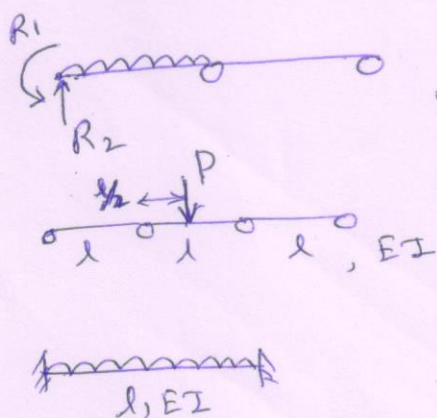 R1
R2
P
l/2
l l l , EI
l, EI